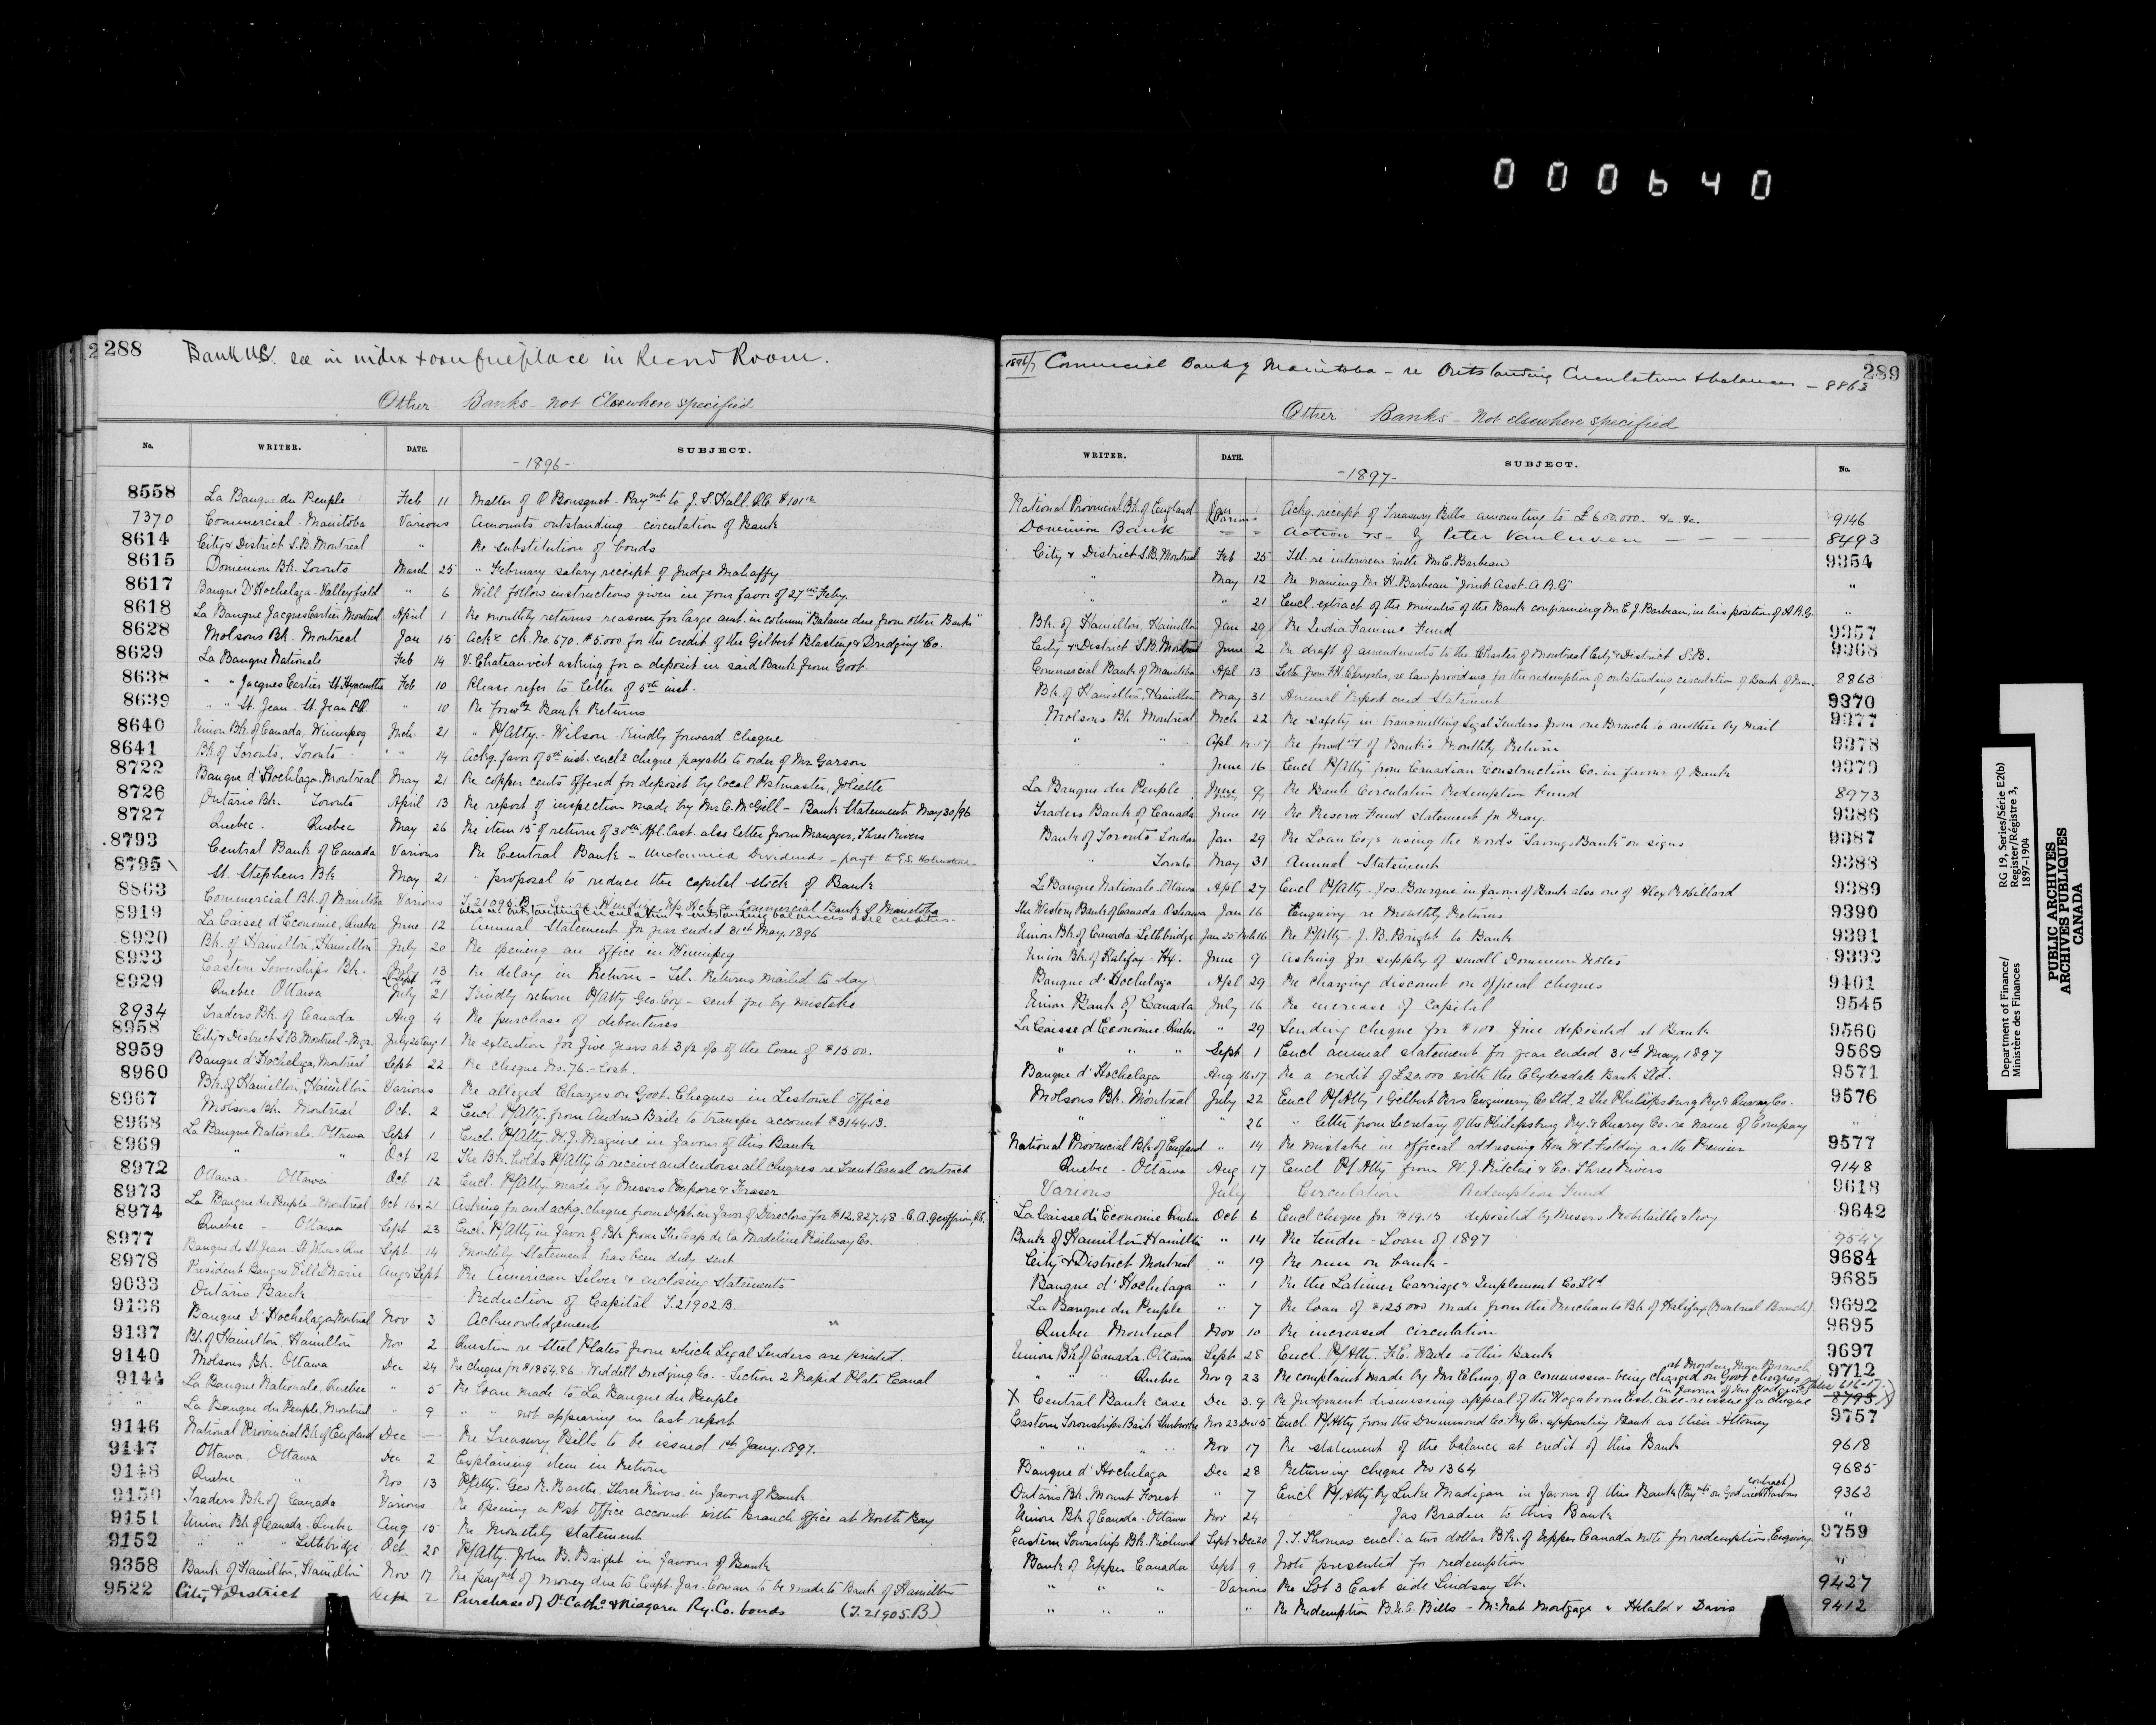 000640
288
Bank U.C. see in index + over fireplace in Record Room.
Other Banks - Not Elsewhere specified
No. WRITER. DATE. SUBJECT.
-1896-
8558 La Banque du Peuple Feb 11 Matter of O Bousquet - Paymt to J. S. Hall Q.C. $101
7370 Commercial Manitoba Various Amounts outstanding circulation of Bank
8614 City & District S.B. Montreal " Re substitution of bonds
8615 Dominion Bk. Toronto March 25 " February salary receipt of Judge Mahaffy
8617 Banque D'Hochelaga - Valleyfield " 6 Will follow instructions given in your favor of 27th Feby.
8618 La Banque Jacques Cartier Montreal April 1 Re monthly returns - reason for large amt. in column "Balance due from other Banks"
8628 Molsons Bk. Montreal Jan 15 Ack. ck. No. 670. $5.000 for the credit of the Gilbert Blasting & Dredging Co.
8629 La Banque Nationale Feb 14 V. Chateauvert asking for a deposit in said Bank from Govt.
8638 " " Jacques Cartier St. Hyacinthe Feb 10 Please refer to letter of 5th inst.
8639 " " St. Jean - St. Jean P.Q. " 10 Re Bank Returns
8640 Union Bk. of Canada, Winnipeg Mch 21 " P/Atty. - Wilson - Kindly forward cheque
8641 Bk of Toronto, Toronto " 14 Ackg. favor of 5th inst. encl. cheque payable to order of Mr Garson
8722 Banque d'Hochelaga. Montreal May 21 Re copper cents offered for deposit by local Postmaster, Joliette
8726 Ontario Bk. Toronto April 13 Re report of inspection made by Mr C. McGill - Bank Statements May 30/96
8727 Quebec. Quebec May 26 Re item 15 of return of 30th Apl. last. also letter from Manager, Three Rivers
8793 Central Bank of Canada Various Re Central Bank - Unclaimed Dividends - payt to G.S.
8795 St. Stephens Bk May 21 " proposal to reduce the capital stock of Bank
8863 Commercial Bk. of Manitoba Various T.21095.B Commercial Bank of Manitoba
also re outstanding circulation & outstanding balances
8919 La Caisse d'Economie, Quebec June 12 Annual Statement for year ended 31st May, 1896
8920 Bk. of Hamilton. Hamilton July 20 Re opening an office in Winnipeg
8923 Eastern Townships Bk. 13 Re delay in Return - Tel. Returns mailed to-day
8929 Quebec Ottawa July 21 Kindly return P/Atty Geo. Cox - sent you by mistake
8934 Traders Bk. of Canada Aug 4 Re purchase of debentures
8958 City & District S.B. Montreal - Mgr. July 20 Aug 1 Re extention for five years at 3½ o/o of the loan of $1500.
8959 Banque d'Hochelaga, Montreal Sept 22 Re cheque No. 76. - Lost.
8960 Bk. of Hamilton, Hamilton Various Re alleged Charges on Govt. Cheques in Listowel Office
8967 Molsons Bk. Montreal Oct. 2 Encl. P/Atty. from Andrew Baile to transfer account $3144.13.
8968 La Banque Nationale. Ottawa Sept 1 Encl. P/Atty. W. J. Maguire in favour of this Bank
8969 " " Oct 12 The Bk. holds P/Atty to receive and endorse all cheques re Trent Canal contract
8972 Ottawa. Ottawa Oct 12 Encl. P/Atty made by Messrs Poupore & Fraser
8973 La Banque du Peuple Montreal Oct 16 & 21 Asking for and ackg. cheque from Dept. in favor of Directors for $12.827.48 - C. A. Geoffrion, Q.C.
8974 Quebec - Ottawa Sept 23 Encl. P/Atty in favor of Bk. from The Cap de la Madeline Railway Co.
8977 Banque de St Jean. St Johns Que Sept. 14 Monthly Statement has been duly sent
8978 President Banque Ville Marie Aug & Sept Re American Silver & enclosing statements
9033 Ontario Bank Reduction of Capital T.21902.B
9136 Banque D'Hochelaga Montreal Nov 3 Acknowledgement "
9137 Bk. of Hamilton, Hamilton Nov 2 Question re Steel Plates from which Legal Tenders are printed.
9140 Molsons Bk. Ottawa Dec 24 Re cheque for $1854.86 - Weddell Dredging Co. - Section 2 Rapid Plate Canal
9144 La Banque Nationale, Quebec " 5 Re loan made to La Banque du Peuple
" La Banque du Peuple, Montreal " 9 " " not appearing in last report
9146 National Provincial Bk of England Dec Re Treasury Bills to be issued 1st Jany. 1897.
9147 Ottawa, Ottawa Dec 2 Explaining item in Return
9148 Quebec " Nov 13 P/Atty. Geo R. Barthe, Three Rivers, in favor of Bank
9150 Traders Bk. of Canada Various Re opening a Post Office account with Branch office at North Bay
9151 Union Bk of Canada - Quebec Aug 15 Re Monthly statement
9152 " " " Lethbridge Oct 28 P/Atty. John B. Bright in favour of Bank
9358 Bank of Hamilton, Hamilton Nov 17 Re paymt of money due to Capt. Jas. Cowan to be made to Bank of Hamilton
9522 City & District Sept 2 Purchase of St Cath. & Niagara Ry. Co. bonds (T.21905.B)
289
1896/7 Commercial Bank of Manitoba - re Outstanding Circulation & balances - 8863
Other Banks - Not elsewhere specified
WRITER. DATE. SUBJECT. No.
-1897-
National Provincial Bk. of England Jan Ackg. receipt of Treasury Bills amounting to £600.000. &c. &c. 9146
Dominion Bank Various Action vs - by Peter VanLuven 8493
City & District S.B. Montreal Feb 25 Tel. re interview with Mr E. Barbeau 9354
" May 12 Re naming Mr H. Barbeau "Joint Asst. A.R.G" "
" " 21 Encl. extract of the minutes of the Bank confirming Mr E J Barbeau, in his position of A.R.G. "
Bk. of Hamilton, Hamilton Jan 29 Re India Famine Fund 9357
City & District S.B. Montreal June 2 Re draft of amendments to the Charter of Montreal City & District S.B. 9368
Commercial Bank of Manitoba Apl 13 Letter from F.H. Chrysler, re law providing for the redemption of outstanding circulation of Bank of Man. 8863
Bk. of Hamilton, Hamilton May 31 Annual Report and Statement 9370
Molsons Bk Montreal Mch 22 Re safety in transmitting Legal Tenders from one Branch to another by mail 9377
" " Apl 14-17 Re of Bank's Monthly Return 9378
" June 16 Encl P/Atty from Canadian Construction Co. in favour of Bank 9379
La Banque du Peuple June 9 Re Bank Circulation Redemption Fund 8973
Traders Bank of Canada June 14 Re Reserve Fund statement for May. 9386
Bank of Toronto - London Jan 29 Re Loan Coys using the words "Savings Bank" on signs 9387
" Toronto May 31 Annual Statement 9388
La Banque Nationale - Ottawa Apl 27 Encl P/Atty - Jos. Bourque in favour of Bank also one of Alex Robillard 9389
The Western Bank of Canada Oshawa Jan 16 Enquiry re Monthly Returns 9390
Union Bk. of Canada - Lethbridge Jan 25 Mch 16 Re P/Atty J. B. Bright to Bank 9391
Union Bk. of Halifax - Hx. June 9 Asking for supply of small Dominion Notes 9392
Banque d'Hochelaga Apl 29 Re charging discount on official cheques 9401
Union Bank of Canada July 16 Re increase of Capital 9545
La Caisse d'Economie Quebec " 29 Sending cheque for $100. fine deposited at Bank 9560
" " " Sept 1 Encl annual statement for year ended 31st May, 1897 9569
Banque d'Hochelaga Aug 16.17 Re a credit of £20.000 with the Clydesdale Bank Ltd. 9571
Molsons Bk. Montreal July 22 Encl P/Atty 1 Gilbert Bros Engineering Co Ltd, 2 The Philipsburg Ry. & Quarry Co. 9576
" " 26 " letter from Secretary of the Philipsburg Ry. & Quarry Co. re name of Company "
National Provincial Bk. of England " 14 Re mistake in official addressing Hon W.S. Fielding as the Premier 9577
Quebec - Ottawa Aug 17 Encl P/Atty from W. J. Ritchie & Co. Three Rivers 9148
Various July Circulation Redemption Fund 9618
La Caisse d'Economie Quebec Oct 6 Encl cheque for $19.15 deposited by Messrs. Robitaille & Roy 9642
Bank of Hamilton Hamilton " 14 Re tender - Loan of 1897 9547
City & District Montreal " 19 Re run on bank - 9684
Banque d'Hochelaga " 1 Re the Latimer Carriage & Implement Co. Ltd 9685
La Banque du Peuple " 7 Re loan of $125000 made from the Merchants Bk of Halifax (Montreal Branch) 9692
Quebec Montreal Nov 10 Re increased circulation 9695
Union Bk of Canada. Ottawa Sept 28 Encl. P/Atty. F.C. Wade to this Bank 9697
" " " Quebec Nov 9 23 Re complaint made by Mr Ebling, of a commission being charged on Govt cheques at Morden, Man Branch 9712
X Central Bank case Dec 3.9 Re Judgment dismissing appeal of the Hogaboom Est. case - reissue of a cheque in favour of 8793
Eastern Townships Bank Sherbrooke Nov 23 Dec 15 Encl. P/Atty from the Drummond Co. Ry Co. appointing Bank as their Attorney 9757
" " " " Nov 17 Re statement of the balance at credit of this Bank 9618
Banque d'Hochelaga Dec 28 Returning cheque No 1364 9685
Ontario Bk. Mount Forest " 7 Encl P/Atty by Luke Madigan in favour of this Bank (Paymts on Goderich Harbour contract) 9362
Union Bk of Canada - Ottawa Nov 24 " Jas Braden to this Bank "
Eastern Townships Bk. Richmond Sept & Dec 20 J. T. Thomas encl. a two dollar Bk. of Upper Canada note for redemption. Enquiring 9759
Bank of Upper Canada Sept 9 Note presented for redemption "
" " " Various Re Lot 3 East side Lindsay St. 9427
" " " " Re Redemption B.U.C. Bills - McNab Mortgage & Heald & Davis 9412
Department of Finance/
Ministère des Finances
RG 19, Series/Série E2(b)
Register/Régistre 3,
1897-1904
PUBLIC ARCHIVES
ARCHIVES PUBLIQUES
CANADA